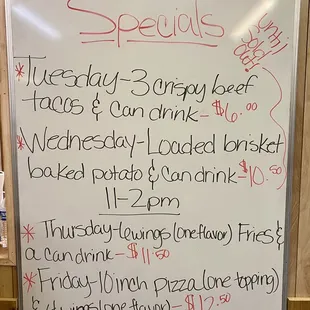 Specials
until
sold
out!
*Tuesday-3 crispy beef
tacos & can drink-$6.00
*Wednesday-Loaded brisket
baked potato & can drink-$10.50
11-2pm
* Thursday-6wings(one flavor) Fries &
a can drink-$11.50
* Friday-10inch pizza(one topping)
& 4wings(one flavor)-$12.50